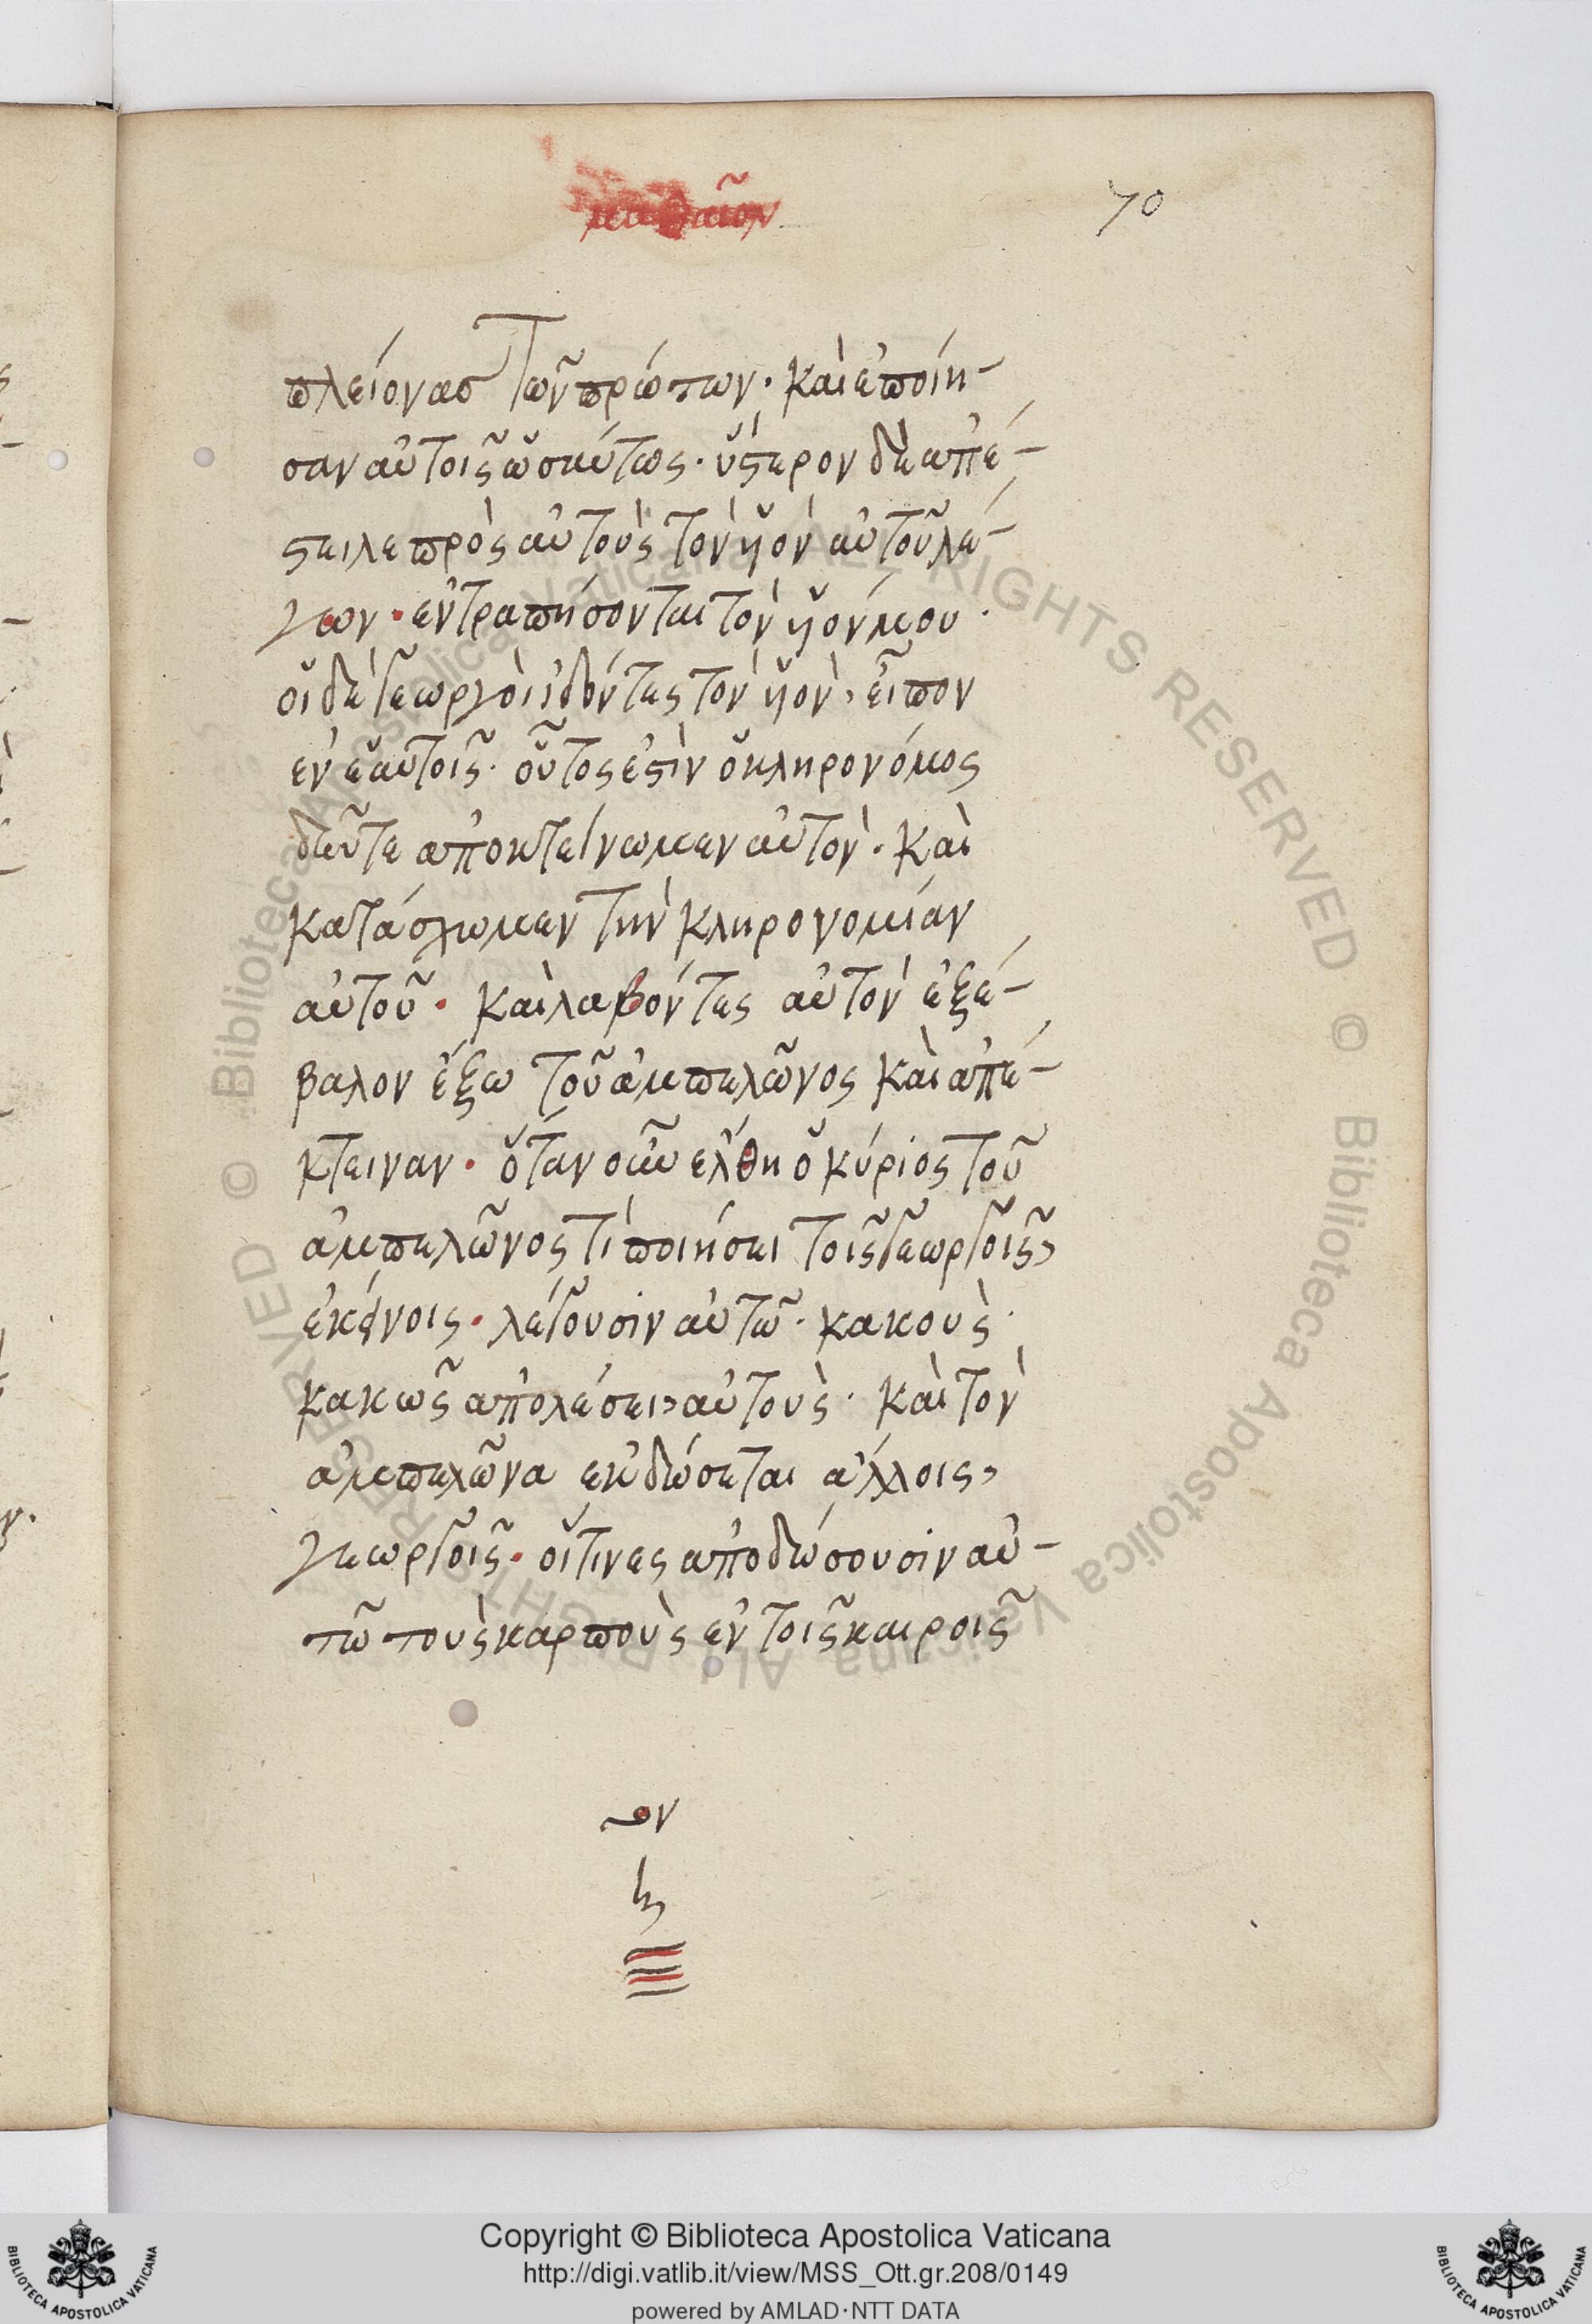 ματθαῖον
70
πλείονας τῶν πρώτων· καὶ ἐποίη-
σαν αὐτοῖς ὡσαύτως· ὕστερον δὲ ἀπέ-
στειλε πρὸς αὐτοὺς τὸν ὑὸν αὐτοῦ λέ-
γων· ἐντραπήσονται τὸν ὑόν μου·
οἱ δὲ γεωργοὶ ἰδόντες τὸν ὑὸν, εἶπον
ἐν ἑαυτοῖς· οὗτος ἐστὶν ὁ κληρονόμος
δεῦτε ἀποκτείνωμεν αὐτὸν· καὶ
κατάσχωμεν τὴν κληρονομίαν
αὐτοῦ· καὶ λαβόντες αὐτὸν ἐξέ-
βαλον ἔξω τοῦ ἀμπελῶνος καὶ ἀπέ-
κτειναν· ὅταν οὖν ἔλθη ὁ κύριος τοῦ
ἀμπελῶνος τί ποιήσει τοῖς γεωργοῖς,
ἐκείνοις· λέγουσιν αὐτῶ· κακοὺς·
κακῶς ἀπολέσει, αὐτοὺς· καὶ τὸν
ἀμπελῶνα ἐκδώσεται ἄλλοις,
γεωργοῖς· οἵτινες ἀποδώσουσιν αὐ-
τῶ τοὺς καρποὺς ἐν τοῖς καιροῖς
Biblioteca Apostolica Vaticana ALL RIGHTS RESERVED © Biblioteca Apostolica Vaticana ALL RIGHTS RESERVED ©
Copyright © Biblioteca Apostolica Vaticana
http://digi.vatlib.it/view/MSS_Ott.gr.208/0149
powered by AMLAD·NTT DATA
BIBLIOTECA APOSTOLICA VATICANA
BIBLIOTECA APOSTOLICA VATICANA